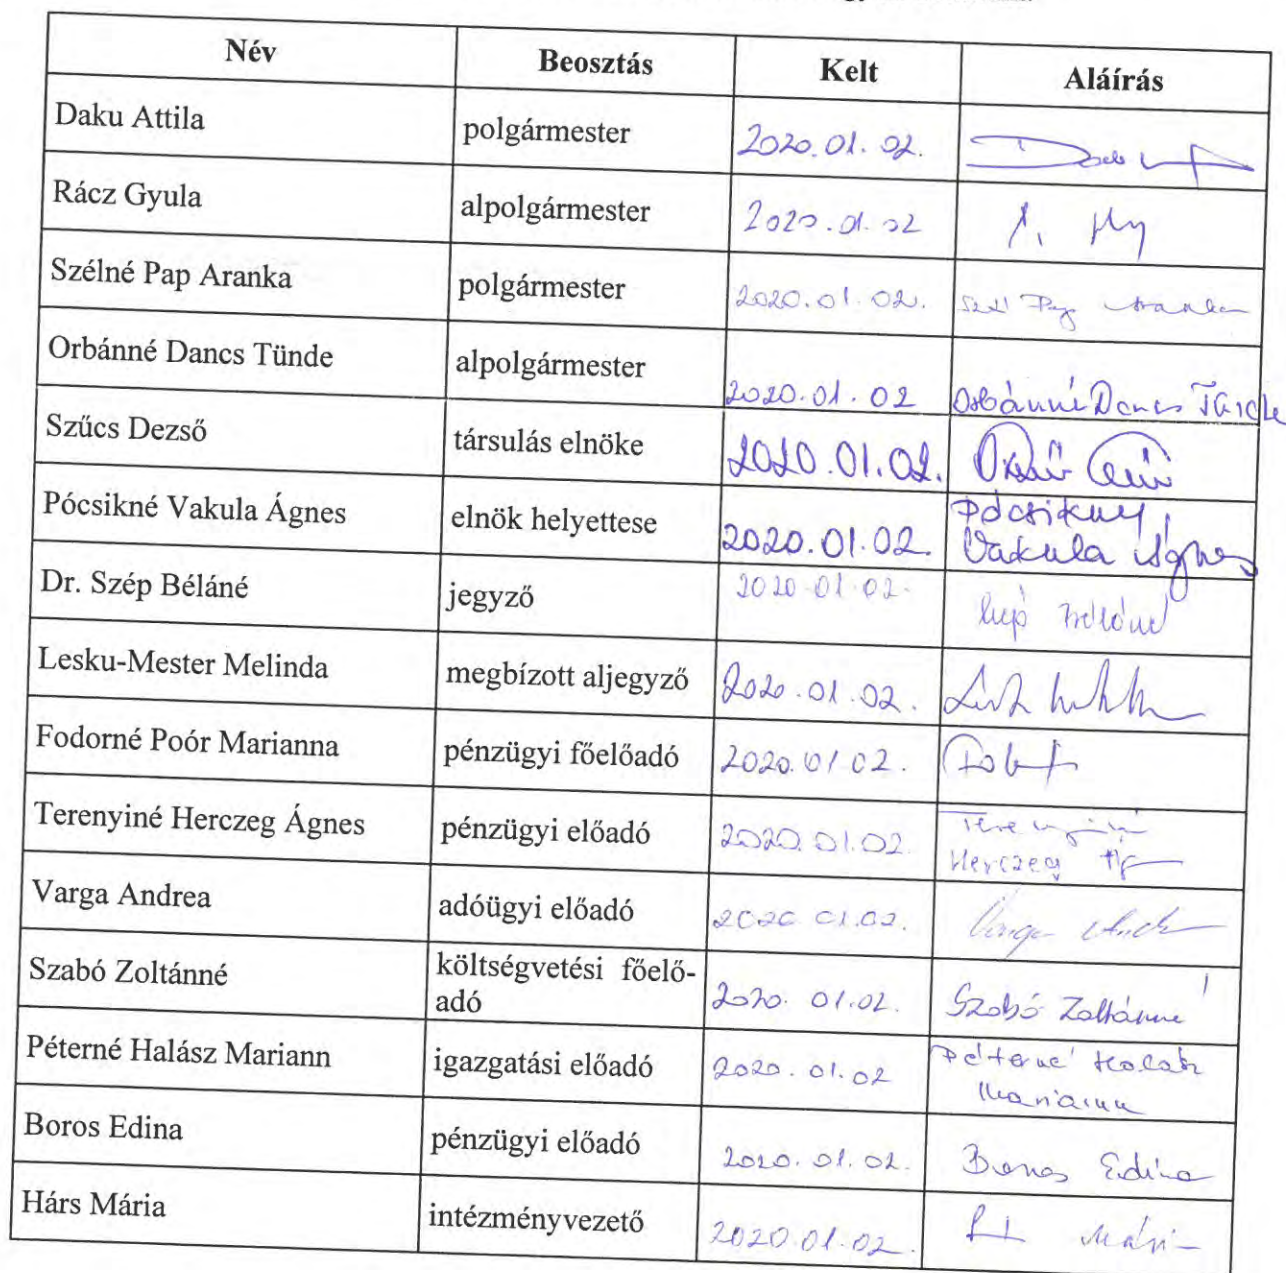 Név Beosztás Kelt Aláírás
Daku Attila polgármester 2020.01.02.
Rácz Gyula alpolgármester 2020.01.02
Szélné Pap Aranka polgármester 2020.01.02. Pap Aranka
Orbánné Dancs Tünde alpolgármester 2020.01.02 Orbánné Dancs Tünde
Szűcs Dezső társulás elnöke 2020.01.02.
Pócsikné Vakula Ágnes elnök helyettese 2020.01.02. Pócsikné
Vakula Ágnes
Dr. Szép Béláné jegyző 2020.01.02. Szép Béláné
Lesku-Mester Melinda megbízott aljegyző 2020.01.02.
Fodorné Poór Marianna pénzügyi főelőadó 2020.01.02.
Terenyiné Herczeg Ágnes pénzügyi előadó 2020.01.02. Terenyiné
Herczeg
Varga Andrea adóügyi előadó 2020.01.02. Varga
Szabó Zoltánné költségvetési főelő-
adó 2020.01.02. Szabó Zoltánné
Péterné Halász Mariann igazgatási előadó 2020.01.02 Péterné Halász
Mariann
Boros Edina pénzügyi előadó 2020.01.02. Boros Edina
Hárs Mária intézményvezető 2020.01.02.